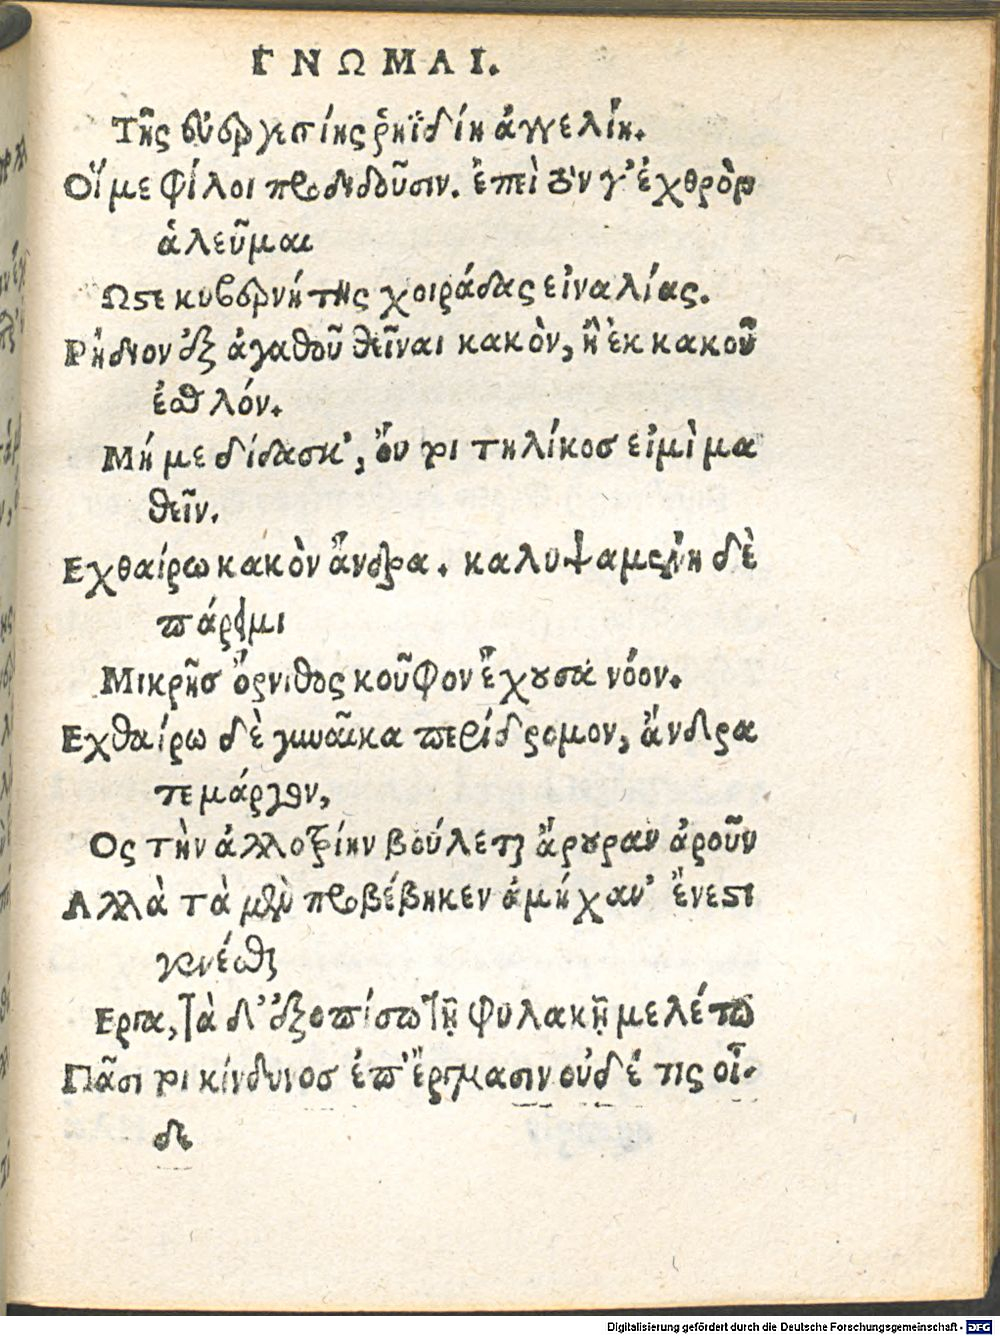 ΓΝΩΜΑΙ.
Τῆς εὐεργεσίης ῥηϊδίη ἀγγελίη.
Οἵ με φίλοι προδιδοῦσιν. ἐπεὶ τόν γ' ἐχθρὸν
ἀλεῦμαι
Ωστε κυβερνήτης χοιράδας εἰναλίας.
Ρήδιον ἐξ ἀγαθοῦ θεῖναι κακὸν, ἢ ἐκ κακοῦ
ἐσθλόν.
Μή με δίδασκ', οὔ τι τηλίκοσ εἰμὶ μα
θεῖν.
Εχθαίρω κακὸν ἄνδρα. καλυψαμένη δὲ
πάρειμι
Μικρῆσ ὄρνιθος κοῦφον ἔχουσα νόον.
Εχθαίρω δὲ γυναῖκα περίδρομον, ἄνδρα
τε μάργον,
Ος τὴν ἀλλοτρίην βούλεται ἄρουραν ἀροῦν
Αλλὰ τὰ μὲν προβέβηκεν ἀμήχαν' ἔνεστι
γενέσθαι
Εργα, τὰ δ' ἐξοπίσω τῇ φυλακῇ μελέτω
Πᾶσι τι κίνδυνοσ ἐπ' ἔργμασιν οὐδέ τις οἶ-
δε
Digitalisierung gefördert durch die Deutsche Forschungsgemeinschaft - DFG